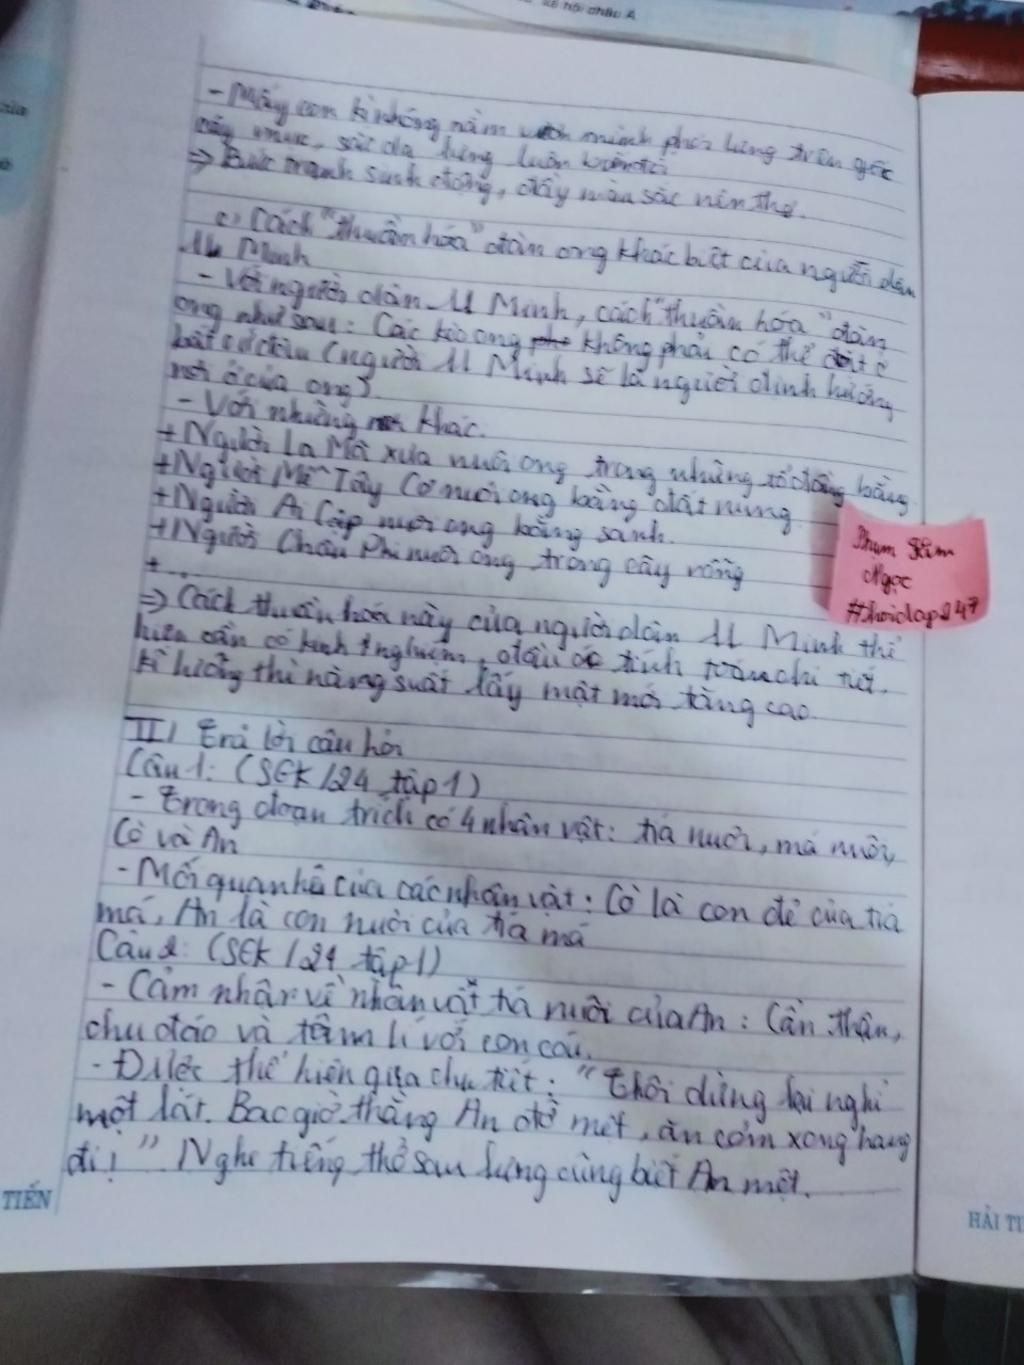 xã hội châu Á
- Mấy con kì nhông nằm vươn mình phơi lưng trên gốc
cây mục, sắc da lưng luôn biến đổi
=> Bức tranh sinh động, đầy màu sắc nên thơ.
c) Cách "thuần hóa" đàn ong khác biệt của người dân
U Minh
- Với người dân U Minh, cách "thuần hóa" đàn
ong như sau: Các kèo ong không phải có thể đặt ở
bất cứ đâu (người U Minh sẽ là người định hướng
nơi ở của ong).
- Với những nơi khác.
+ Người La Mã xưa nuôi ong trong những tổ đồng bằng
+ Người Mễ Tây Cơ nuôi ong bằng đất nung
+ Người Ai Cập nuôi ong bằng sành.
+ Người Châu Phi nuôi ong trong cây rỗng
+ ...
=> Cách thuần hoá này của người dân U Minh thể
hiện cần có kinh nghiệm, đầu óc tính toán chi tiết,
kĩ lưỡng thì năng suất lấy mật mới tăng cao.
II/ Trả lời câu hỏi
Câu 1: (SGK/24 tập 1)
- Trong đoạn trích có 4 nhân vật: tía nuôi, má nuôi,
Cò và An
- Mối quan hệ của các nhân vật: Cò là con đẻ của tía
má, An là con nuôi của tía má
Câu 2: (SGK/24 tập 1)
- Cảm nhận về nhân vật tía nuôi của An: Cẩn thận,
chu đáo và tâm lí với con cái.
- Được thể hiện qua chi tiết: "Thôi dừng lại nghỉ
một lát. Bao giờ thằng An đỡ mệt, ăn cơm xong hang
đi!" Nghe tiếng thở sau lưng cũng biết An mệt.
Phạm
Ngọc
#hoidap247
TIẾN
HẢI TI